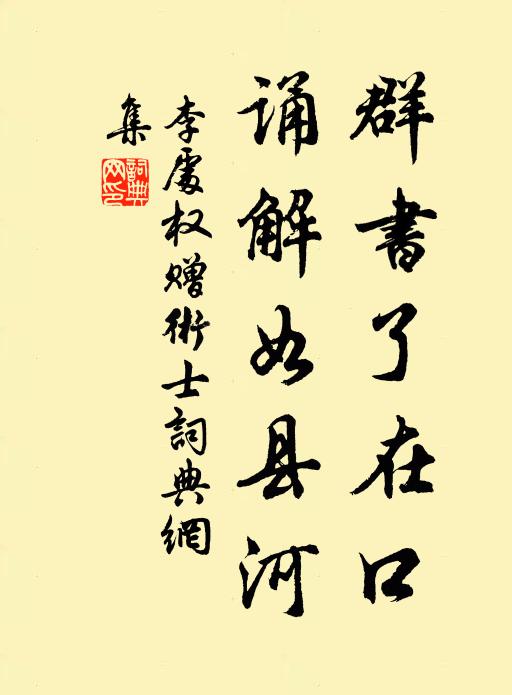 群書了在口
诵解如县河
李處权赠術士詞典網
集
詞典
网印